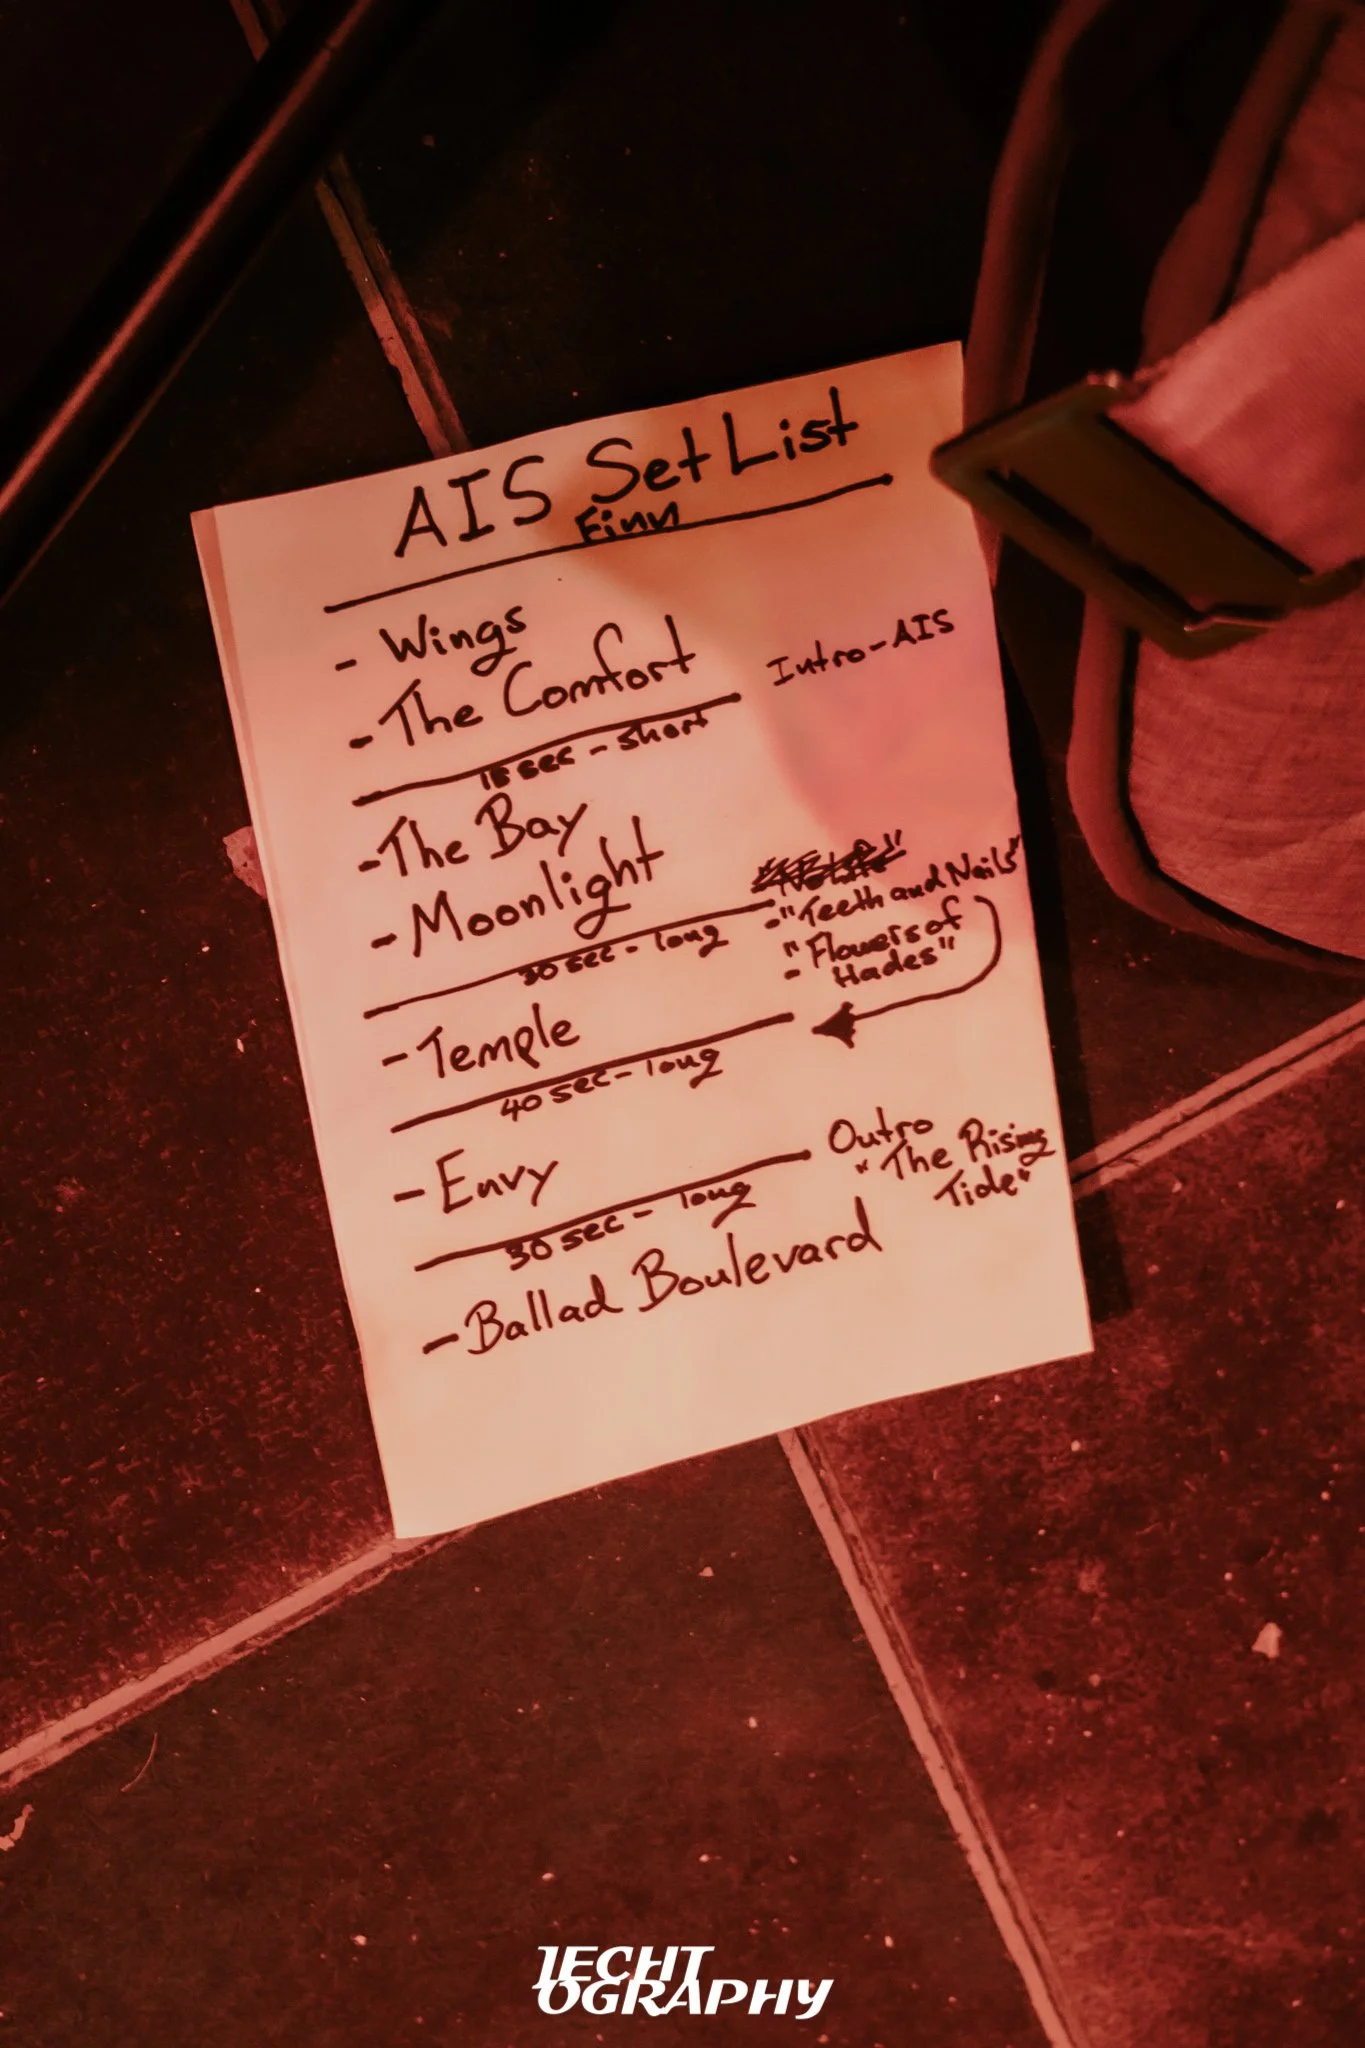 AIS Set List
Finn
- Wings
- The Comfort
Intro-AIS
15 sec - short
- The Bay
- Moonlight
- "Teeth and Nails"
- "Flowers of
Hades"
30 sec - long
- Temple
40 sec - long
- Envy
Outro
"The Rising
Tide"
30 sec - long
- Ballad Boulevard
IECHT
OGRAPHY